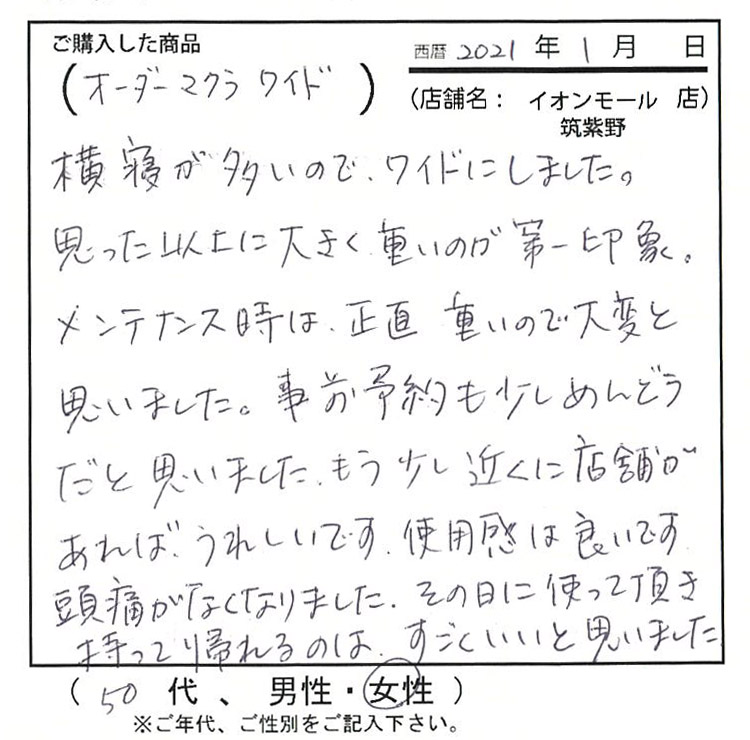 ご購入した商品
西暦 2021 年 1 月 日
(オーダーマクラ ワイド)
(店舗名: イオンモール 店)
筑紫野
横寝が多いので、ワイドにしました。
思った以上に大きく重いのが第一印象。
メンテナンス時は、正直 重いので大変と
思いました。事前予約も少しめんどう
だと思いました、もう少し近くに店舗が
あれば、うれしいです、使用感は良いです
頭痛がなくなりました、その日に使って頂き
持って帰れるのは、すごくいいと思いました
(50 代 、 男性・女性 )
※ご年代、ご性別をご記入下さい。